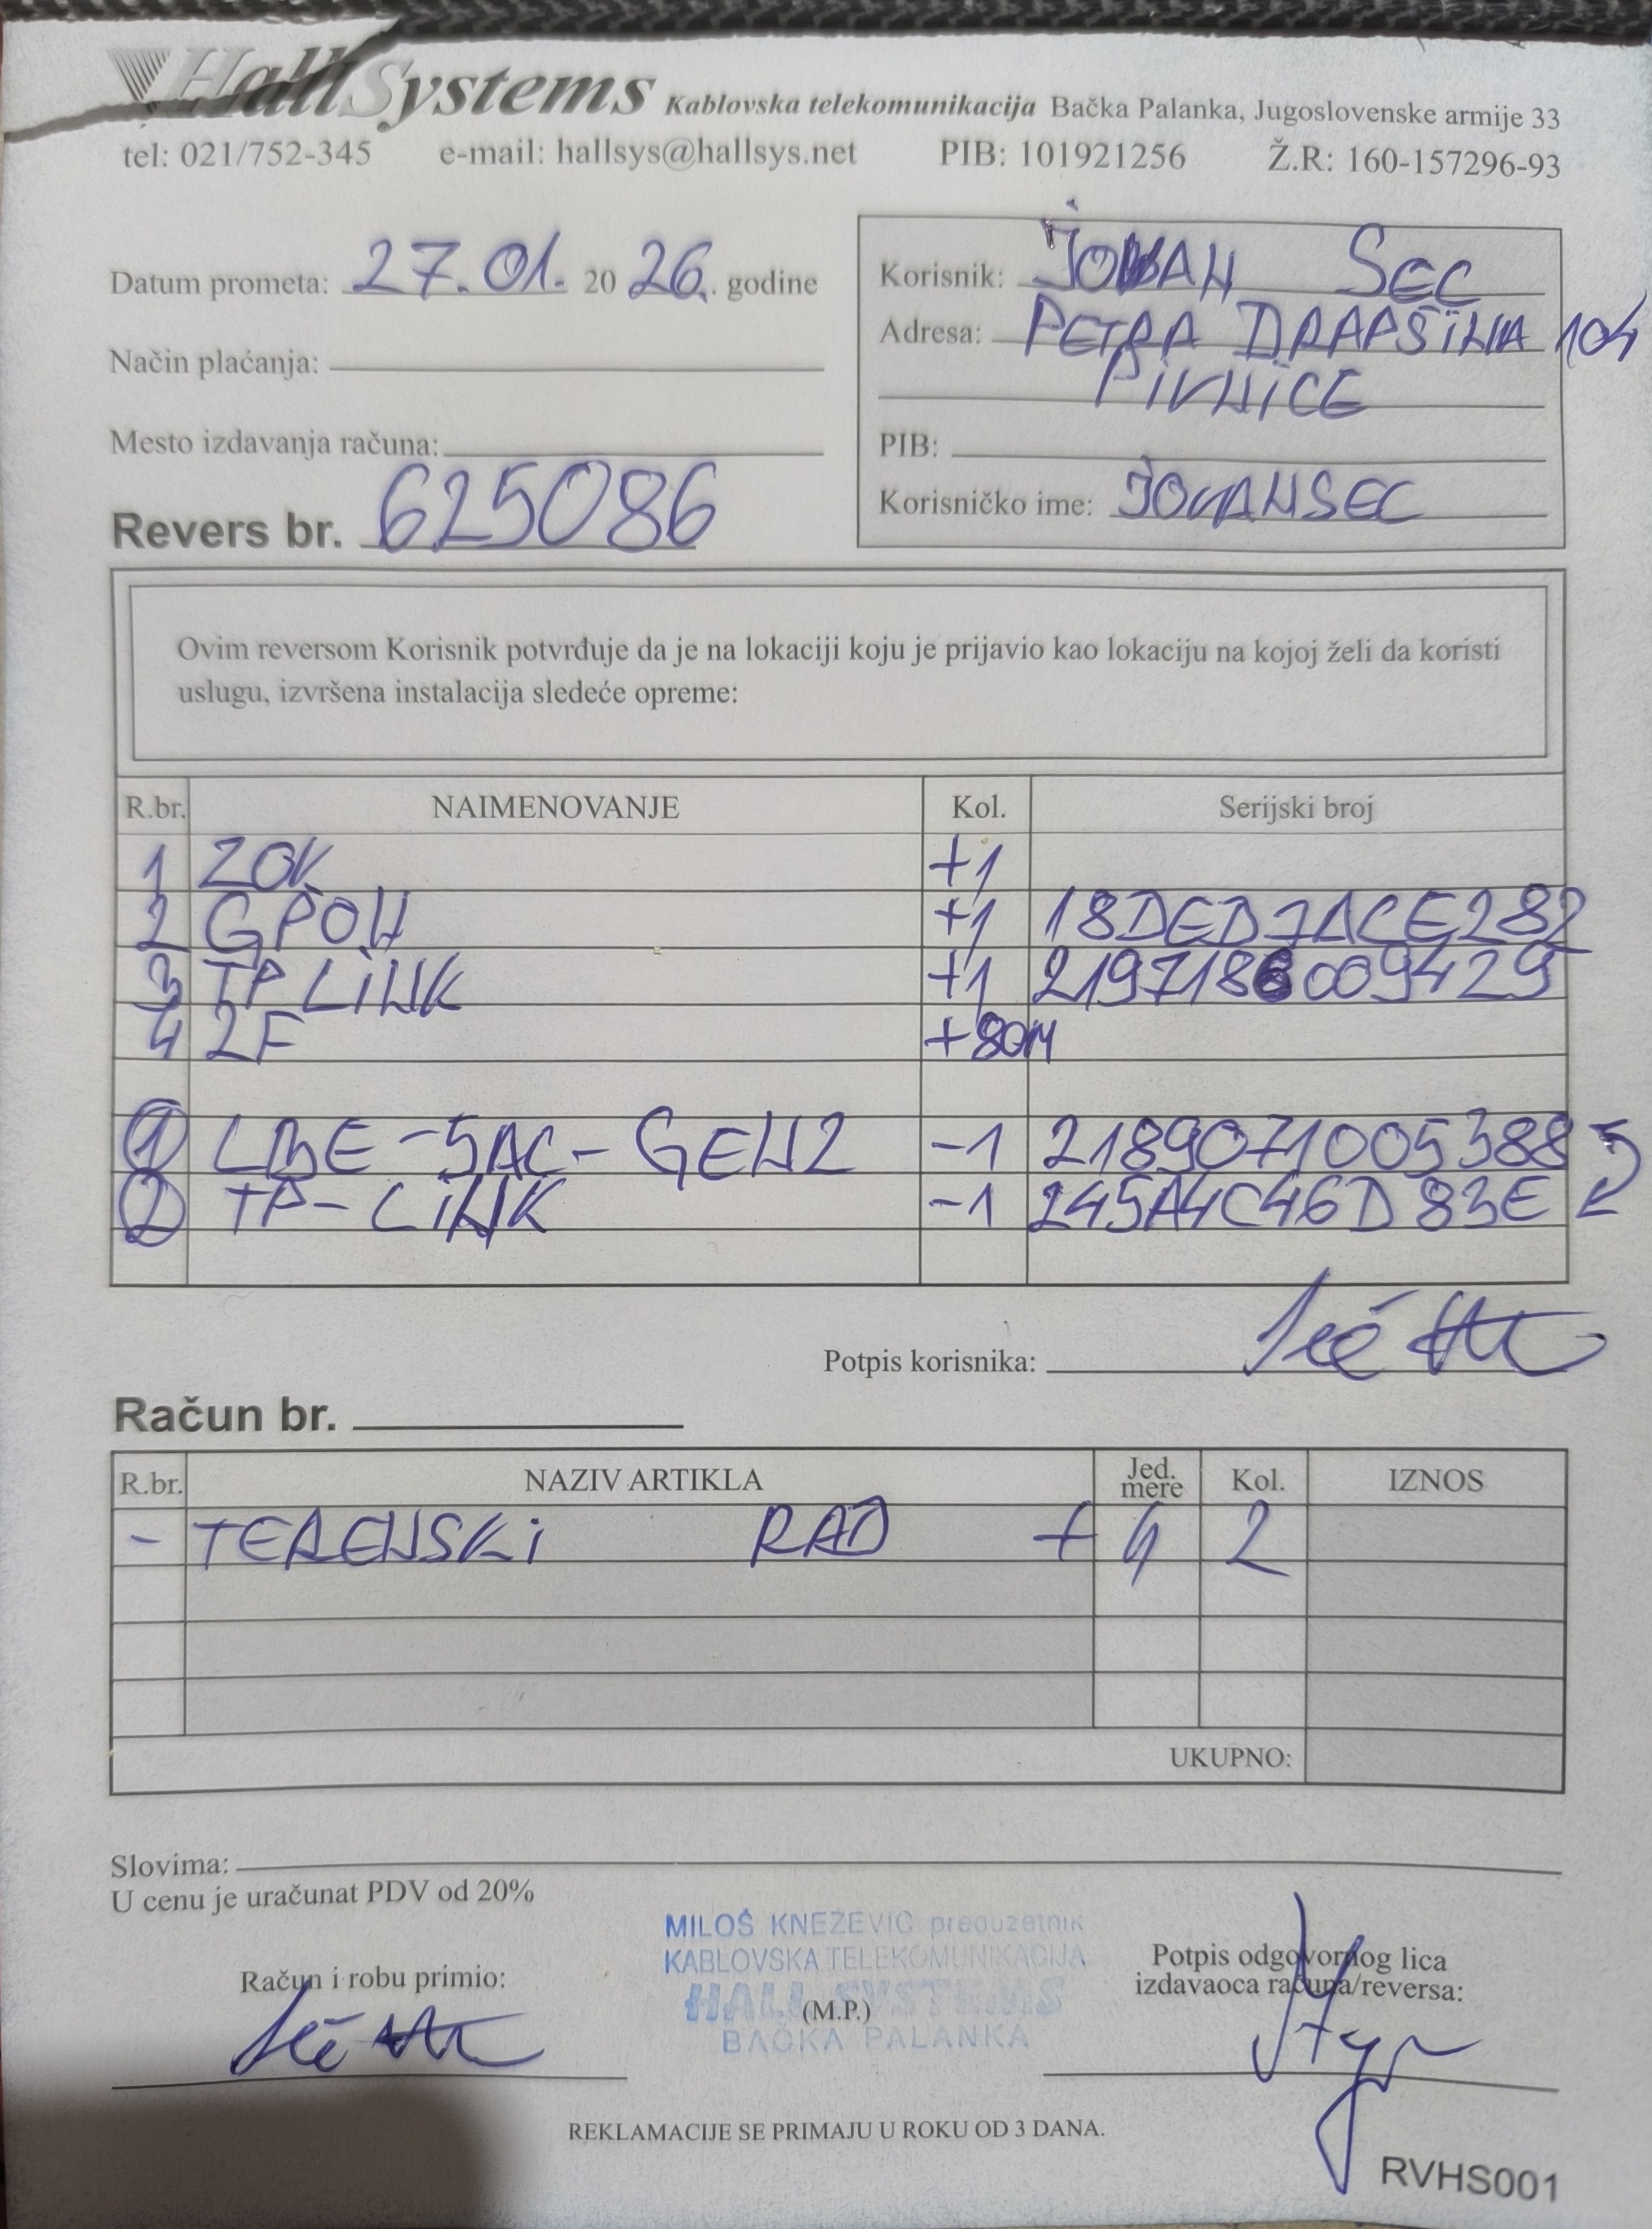 HallSystems Kablovska telekomunikacija Bačka Palanka, Jugoslovenske armije 33
tel: 021/752-345 e-mail: hallsys@hallsys.net PIB: 101921256 Ž.R: 160-157296-93
Datum prometa: 27.01. 2026. godine
Način plaćanja:
Mesto izdavanja računa:
Revers br. 625086
Korisnik: JOVAN SEČ
Adresa: PETRA DRAPŠINA 104
PIVNICE
PIB:
Korisničko ime: JOVANSEC
Ovim reversom Korisnik potvrđuje da je na lokaciji koju je prijavio kao lokaciju na kojoj želi da koristi
uslugu, izvršena instalacija sledeće opreme:
R.br. NAIMENOVANJE Kol. Serijski broj
1 ZOK +1
2 GPON +1 18DED7ACE282
3 TP LINK +1 2197186009429
4 2F +80M
1 LBE-5AC-GEN2 -1 2189071005388
2 TP-LINK -1 245A4C46D83E
Potpis korisnika:
Račun br.
R.br. NAZIV ARTIKLA Jed. mere Kol. IZNOS
- TERENSKI RAD + 4 2
UKUPNO:
Slovima:
U cenu je uračunat PDV od 20%
MILOŠ KNEŽEVIĆ preduzetnik
KABLOVSKA TELEKOMUNIKACIJA
HALL SYSTEMS
BAČKA PALANKA
Račun i robu primio:
(M.P.)
Potpis odgovornog lica
izdavaoca računa/reversa:
REKLAMACIJE SE PRIMAJU U ROKU OD 3 DANA.
RVHS001